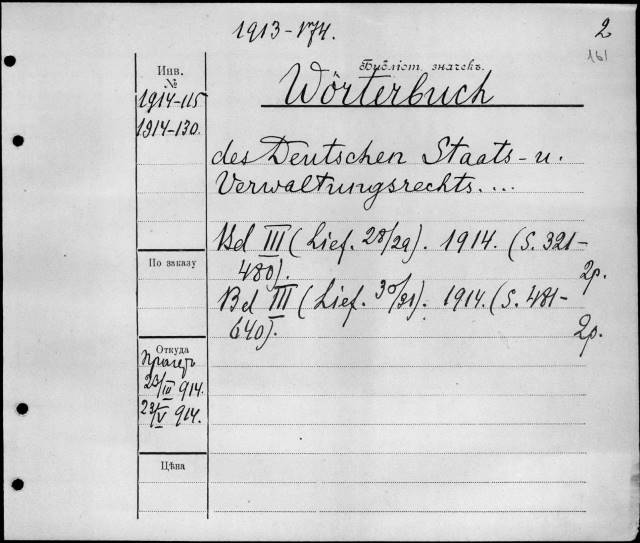 1913-174.
2
161
Инв.
№
1914-115
1914-130.
Библіот. значекъ.
Wörterbuch
des Deutschen Staats- u.
Verwaltungsrechts....
Bd III (Lief. 28/29). 1914. (S. 321-
480).
2р.
Bd III (Lief. 30/31). 1914. (S. 481-
640).
2р.
По заказу
Откуда
23/III 914.
23/V 914.
Цѣна